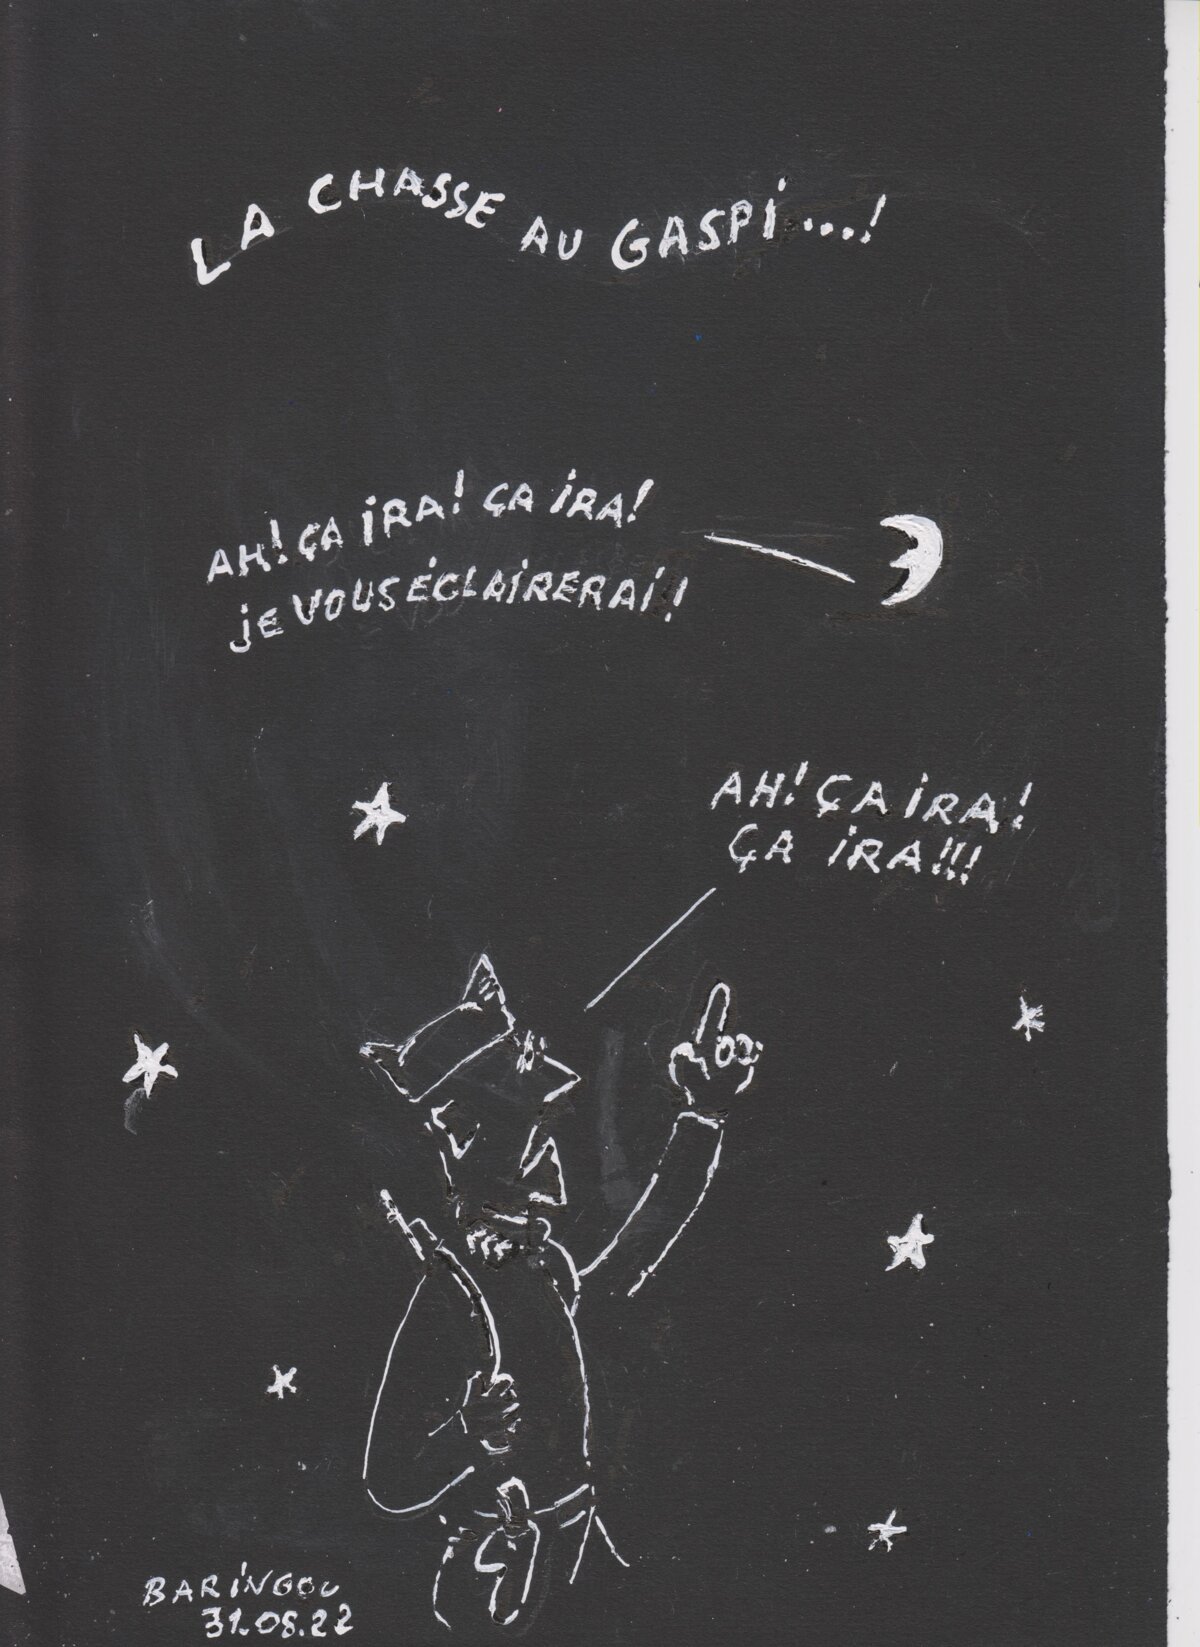 LA CHASSE AU GASPI...!
AH! ÇA IRA! ÇA IRA!
JE VOUS ÉCLAIRERAI!
AH! ÇA IRA!
ÇA IRA!!!
BARINGOU
31.08.22